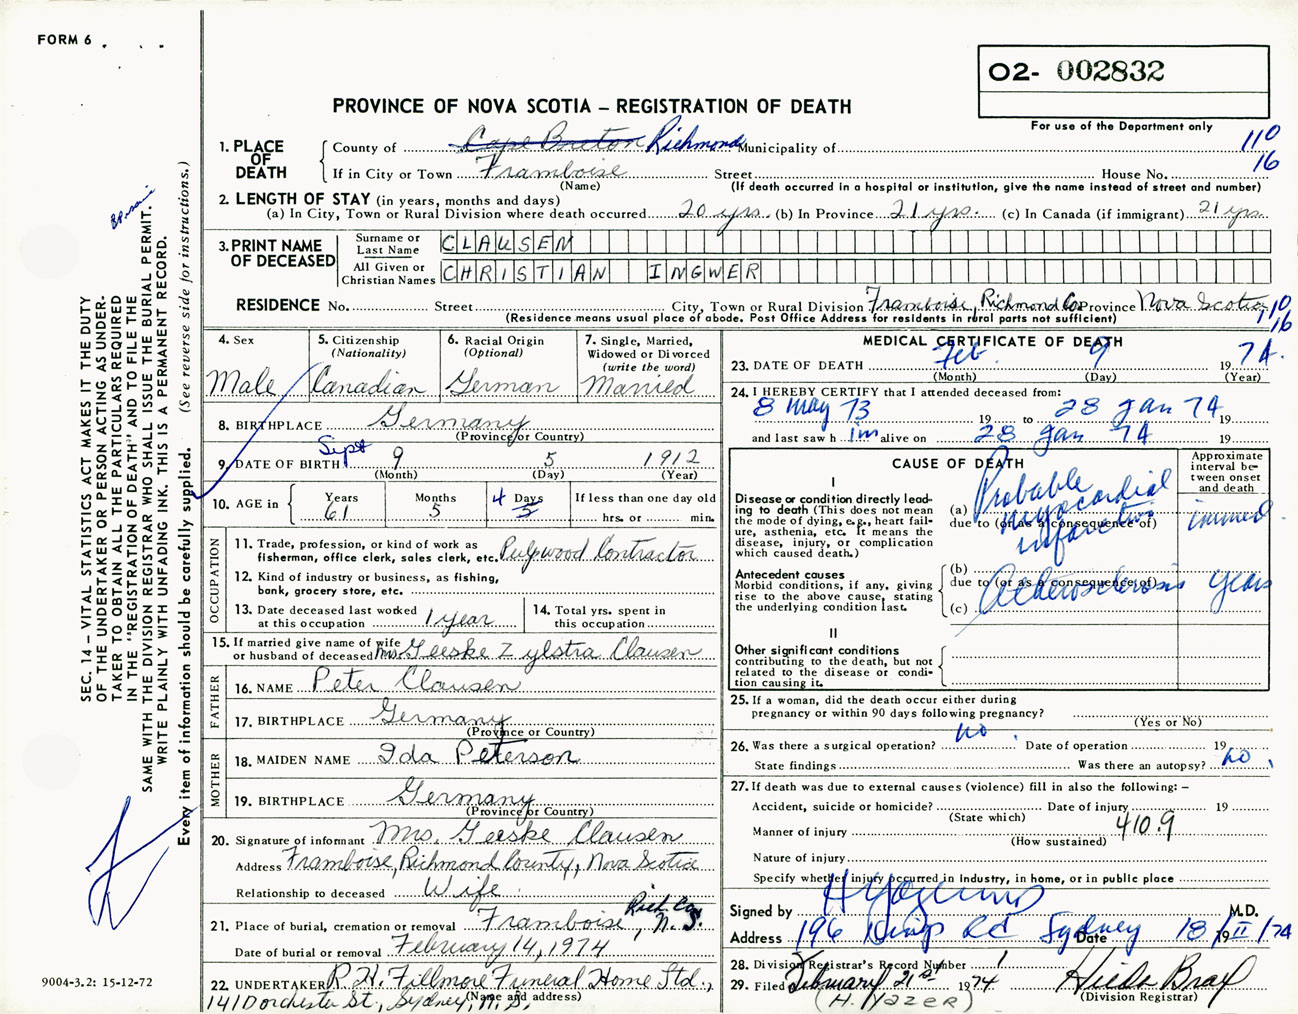 FORM 6
02- 002832
PROVINCE OF NOVA SCOTIA – REGISTRATION OF DEATH
For use of the Department only
110
16
1. PLACE OF DEATH
County of Cape Breton Richmond Municipality of
If in City or Town Framboise Street House No.
(Name) (If death occurred in a hospital or institution, give the name instead of street and number)
2. LENGTH OF STAY (in years, months and days)
(a) In City, Town or Rural Division where death occurred 20 yrs. (b) In Province 21 yrs. (c) In Canada (if immigrant) 21 yrs.
3. PRINT NAME OF DECEASED
Surname or Last Name CLAUSEN
All Given or Christian Names CHRISTIAN INGWER
RESIDENCE No. Street City, Town or Rural Division Framboise, Richmond Co. Province Nova Scotia
110
16
(Residence means usual place of abode. Post Office Address for residents in rural parts not sufficient)
4. Sex
Male
5. Citizenship
(Nationality)
Canadian
6. Racial Origin
(Optional)
German
7. Single, Married,
Widowed or Divorced
(write the word)
Married
8. BIRTHPLACE Germany
(Province or Country)
9. DATE OF BIRTH Sept 9 5 1912
(Month) (Day) (Year)
10. AGE in
Years Months Days If less than one day old
61 5 4 5 hrs. or min.
OCCUPATION
11. Trade, profession, or kind of work as
fisherman, office clerk, sales clerk, etc. Pulpwood Contractor
12. Kind of industry or business, as fishing,
bank, grocery store, etc.
13. Date deceased last worked
at this occupation 1 year
14. Total yrs. spent in
this occupation
15. If married give name of wife
or husband of deceased Mrs. Geeske Zylstra Clausen
FATHER
16. NAME Peter Clausen
17. BIRTHPLACE Germany
(Province or Country)
MOTHER
18. MAIDEN NAME Ida Peterson
19. BIRTHPLACE Germany
(Province or Country)
20. Signature of informant Mrs. Geeske Clausen
Address Framboise, Richmond County, Nova Scotia
Relationship to deceased Wife
21. Place of burial, cremation or removal Framboise, Rich. Co. N.S.
Date of burial or removal February 14, 1974
22. UNDERTAKER R.H. Fillmore Funeral Home Ltd.,
141 Dorchester St., Sydney, N.S.
(Name and address)
MEDICAL CERTIFICATE OF DEATH
23. DATE OF DEATH Feb 9 1974.
(Month) (Day) (Year)
24. I HEREBY CERTIFY that I attended deceased from:
8 May 73 19 to 28 Jan 74 19
and last saw h im alive on 28 Jan 74 19
CAUSE OF DEATH
Approximate interval between onset and death
I
Disease or condition directly leading to death (This does not mean the mode of dying, e.g., heart failure, asthenia, etc. It means the disease, injury, or complication which caused death.)
(a) Probable myocardial infarction immed
due to (or as a consequence of)
Antecedent causes
Morbid conditions, if any, giving
rise to the above cause, stating
the underlying condition last.
(b)
due to (or as a consequence of)
(c) Atherosclerosis years
II
Other significant conditions
contributing to the death, but not
related to the disease or condition causing it.
25. If a woman, did the death occur either during
pregnancy or within 90 days following pregnancy?
(Yes or No)
26. Was there a surgical operation? no Date of operation 19
State findings Was there an autopsy? no
27. If death was due to external causes (violence) fill in also the following: –
Accident, suicide or homicide? Date of injury 19
(State which)
410.9
Manner of injury
(How sustained)
Nature of injury
Specify whether injury occurred in industry, in home, or in public place
Signed by H Yazer M.D.
Address 196 Kings Rd Sydney Date 18/II/74
28. Division Registrar's Record Number 1
29. Filed February 21st 1974
(H. YAZER)
(Division Registrar)
SEC. 14 – VITAL STATISTICS ACT MAKES IT THE DUTY
OF THE UNDERTAKER OR PERSON ACTING AS UNDER-
TAKER TO OBTAIN ALL THE PARTICULARS REQUIRED
IN THE "REGISTRATION OF DEATH" AND TO FILE THE
SAME WITH THE DIVISION REGISTRAR WHO SHALL ISSUE THE BURIAL PERMIT.
WRITE PLAINLY WITH UNFADING INK. THIS IS A PERMANENT RECORD.
Every item of information should be carefully supplied. (See reverse side for instructions.)
9004-3.2: 15-12-72